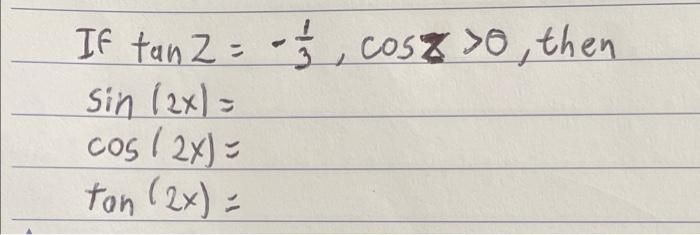 If tan Z = -1/3, cos Z >0, then
sin (2x) =
cos (2x) =
tan (2x) =